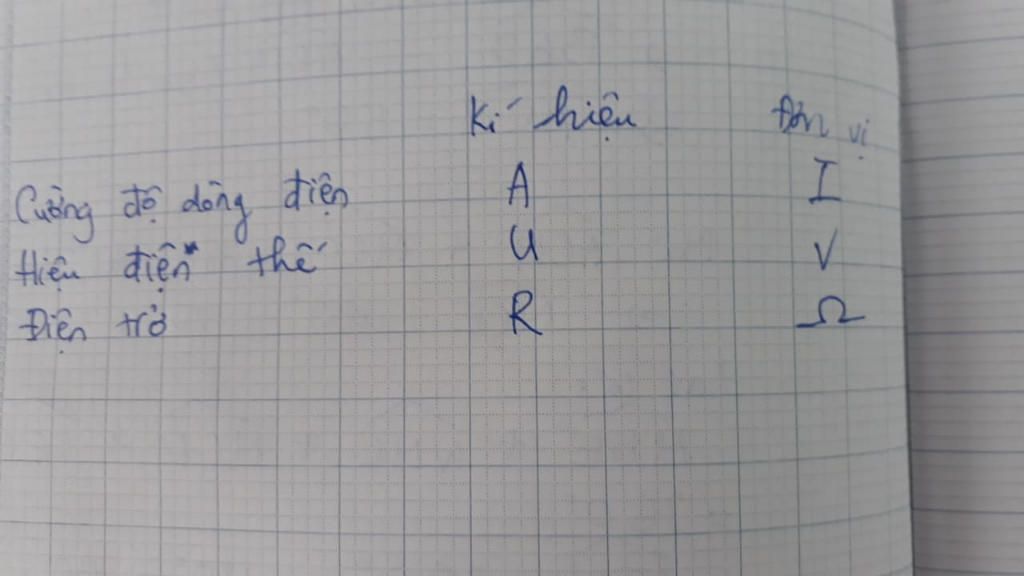 Kí hiệu Đơn vị
Cường độ dòng điện A I
Hiệu điện thế U V
Điện trở R Ω